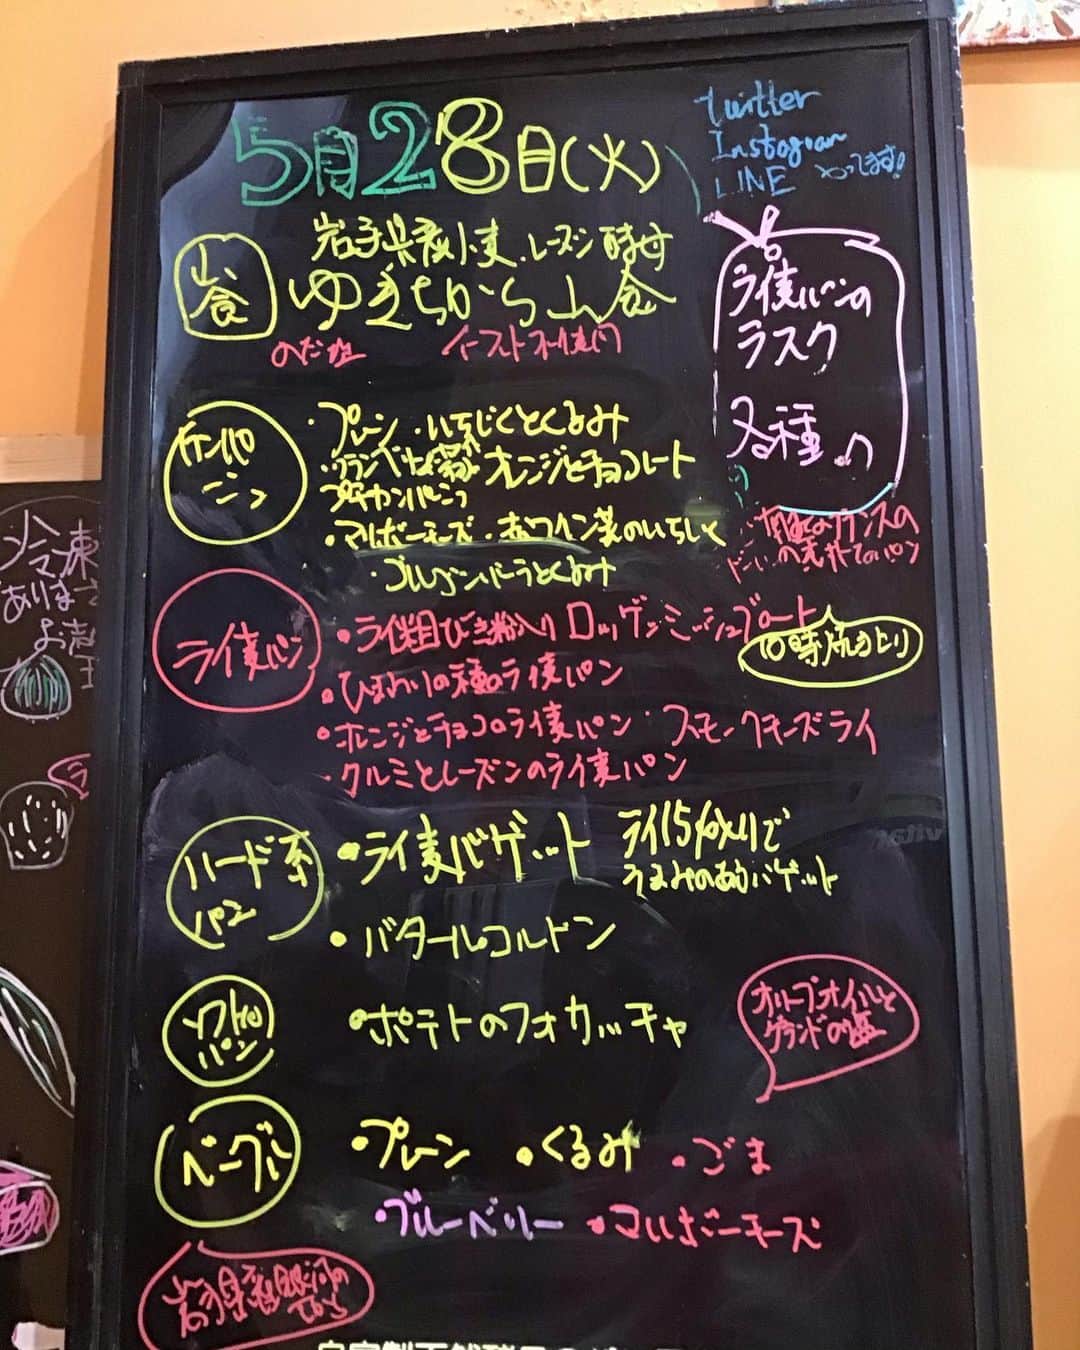 5月28日(火)
twitter
Instagram
LINE やってます!
山食
岩手県産小麦、レーズン酵母
ゆきちから山食
イースト不使用
ライ麦パンの
ラスク
各種
カンパーニュ
・プレーン ・いちじくとくるみ
オレンジとチョコレート
・マリボーチーズ・赤ワイン煮のいちじく
・ゴルゴンゾーラとくるみ
ライ麦パン
・ライ麦粗びき粉入り ロッゲンミッシュブロート
10時焼き上り
・ひまわりの種のライ麦パン
・オレンジとチョコのライ麦パン・スモークチーズライ
・クルミとレーズンのライ麦パン
ハード系
パン
・ライ麦バゲット
うまみのあるバゲット
・バタールコルドン
ソフトな
パン
・ポテトのフォカッチャ
オリーブオイルと
ゲランドの塩
ベーグル
・プレーン ・くるみ ・ごま
・ブルーベリー ・マリボーチーズ
岩手県産銀河の
ちから
冷凍
あります